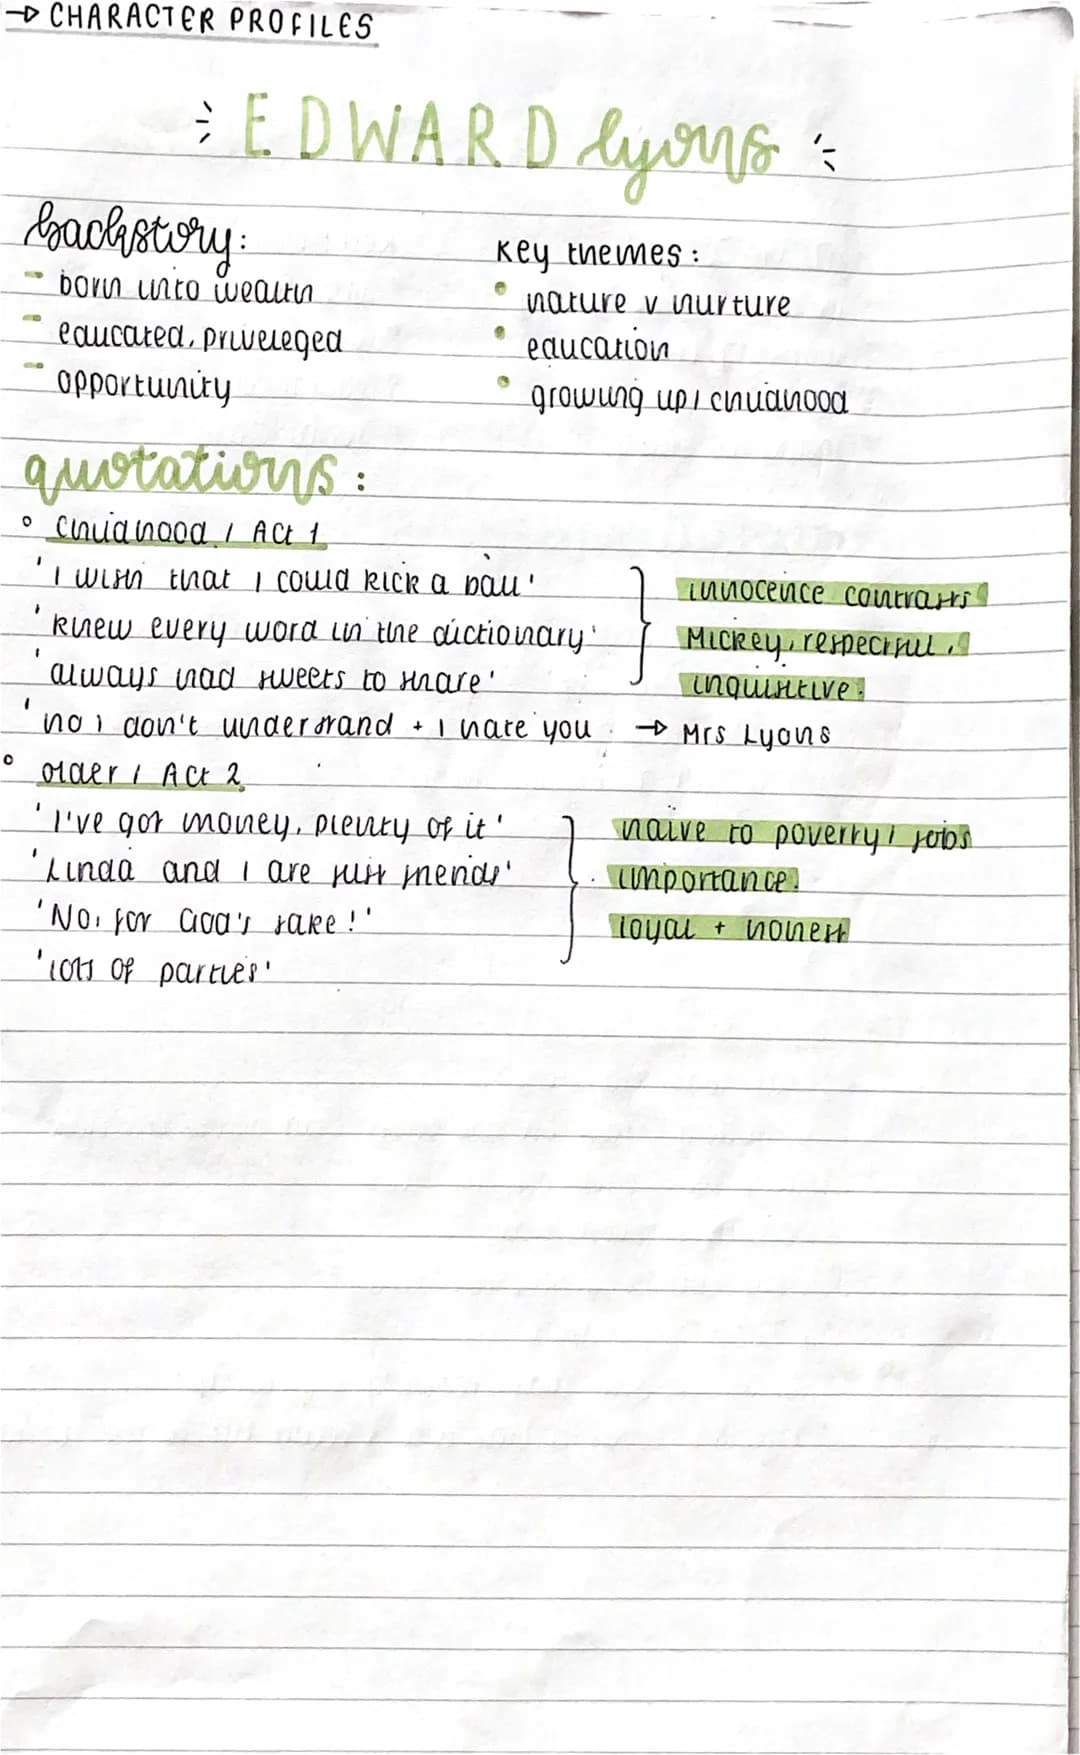 → CHARACTER PROFILES
EDWARD lyons
backstory:
- born into wealth
- educated, priveleged
- opportunity
key themes:
• nature v nurture
• education
• growing up / childhood
quotations:
° childhood / Act 1
'I wish that I could kick a ball'
'knew every word in the dictionary'
'always had sweets to share'
innocence contrasts
Mickey, respectful,
inquisitive.
'no i don't understand + i hate you → Mrs Lyons
° older / Act 2
'I've got money, plenty of it'
'Linda and I are just friends'
'No, for God's sake!'
'lots of parties'
naïve to poverty / jobs
importance.
loyal + honest